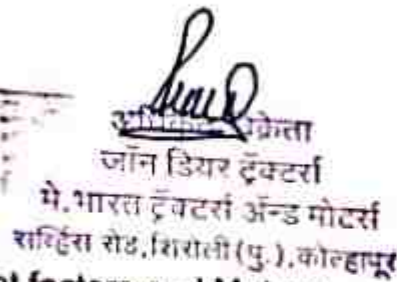 अधिकृत विक्रेता
जॉन डियर ट्रॅक्टर्स
मे.भारत ट्रॅक्टर्स ॲन्ड मोटर्स
सर्व्हिस रोड,शिरोली(पु.),कोल्हापूर